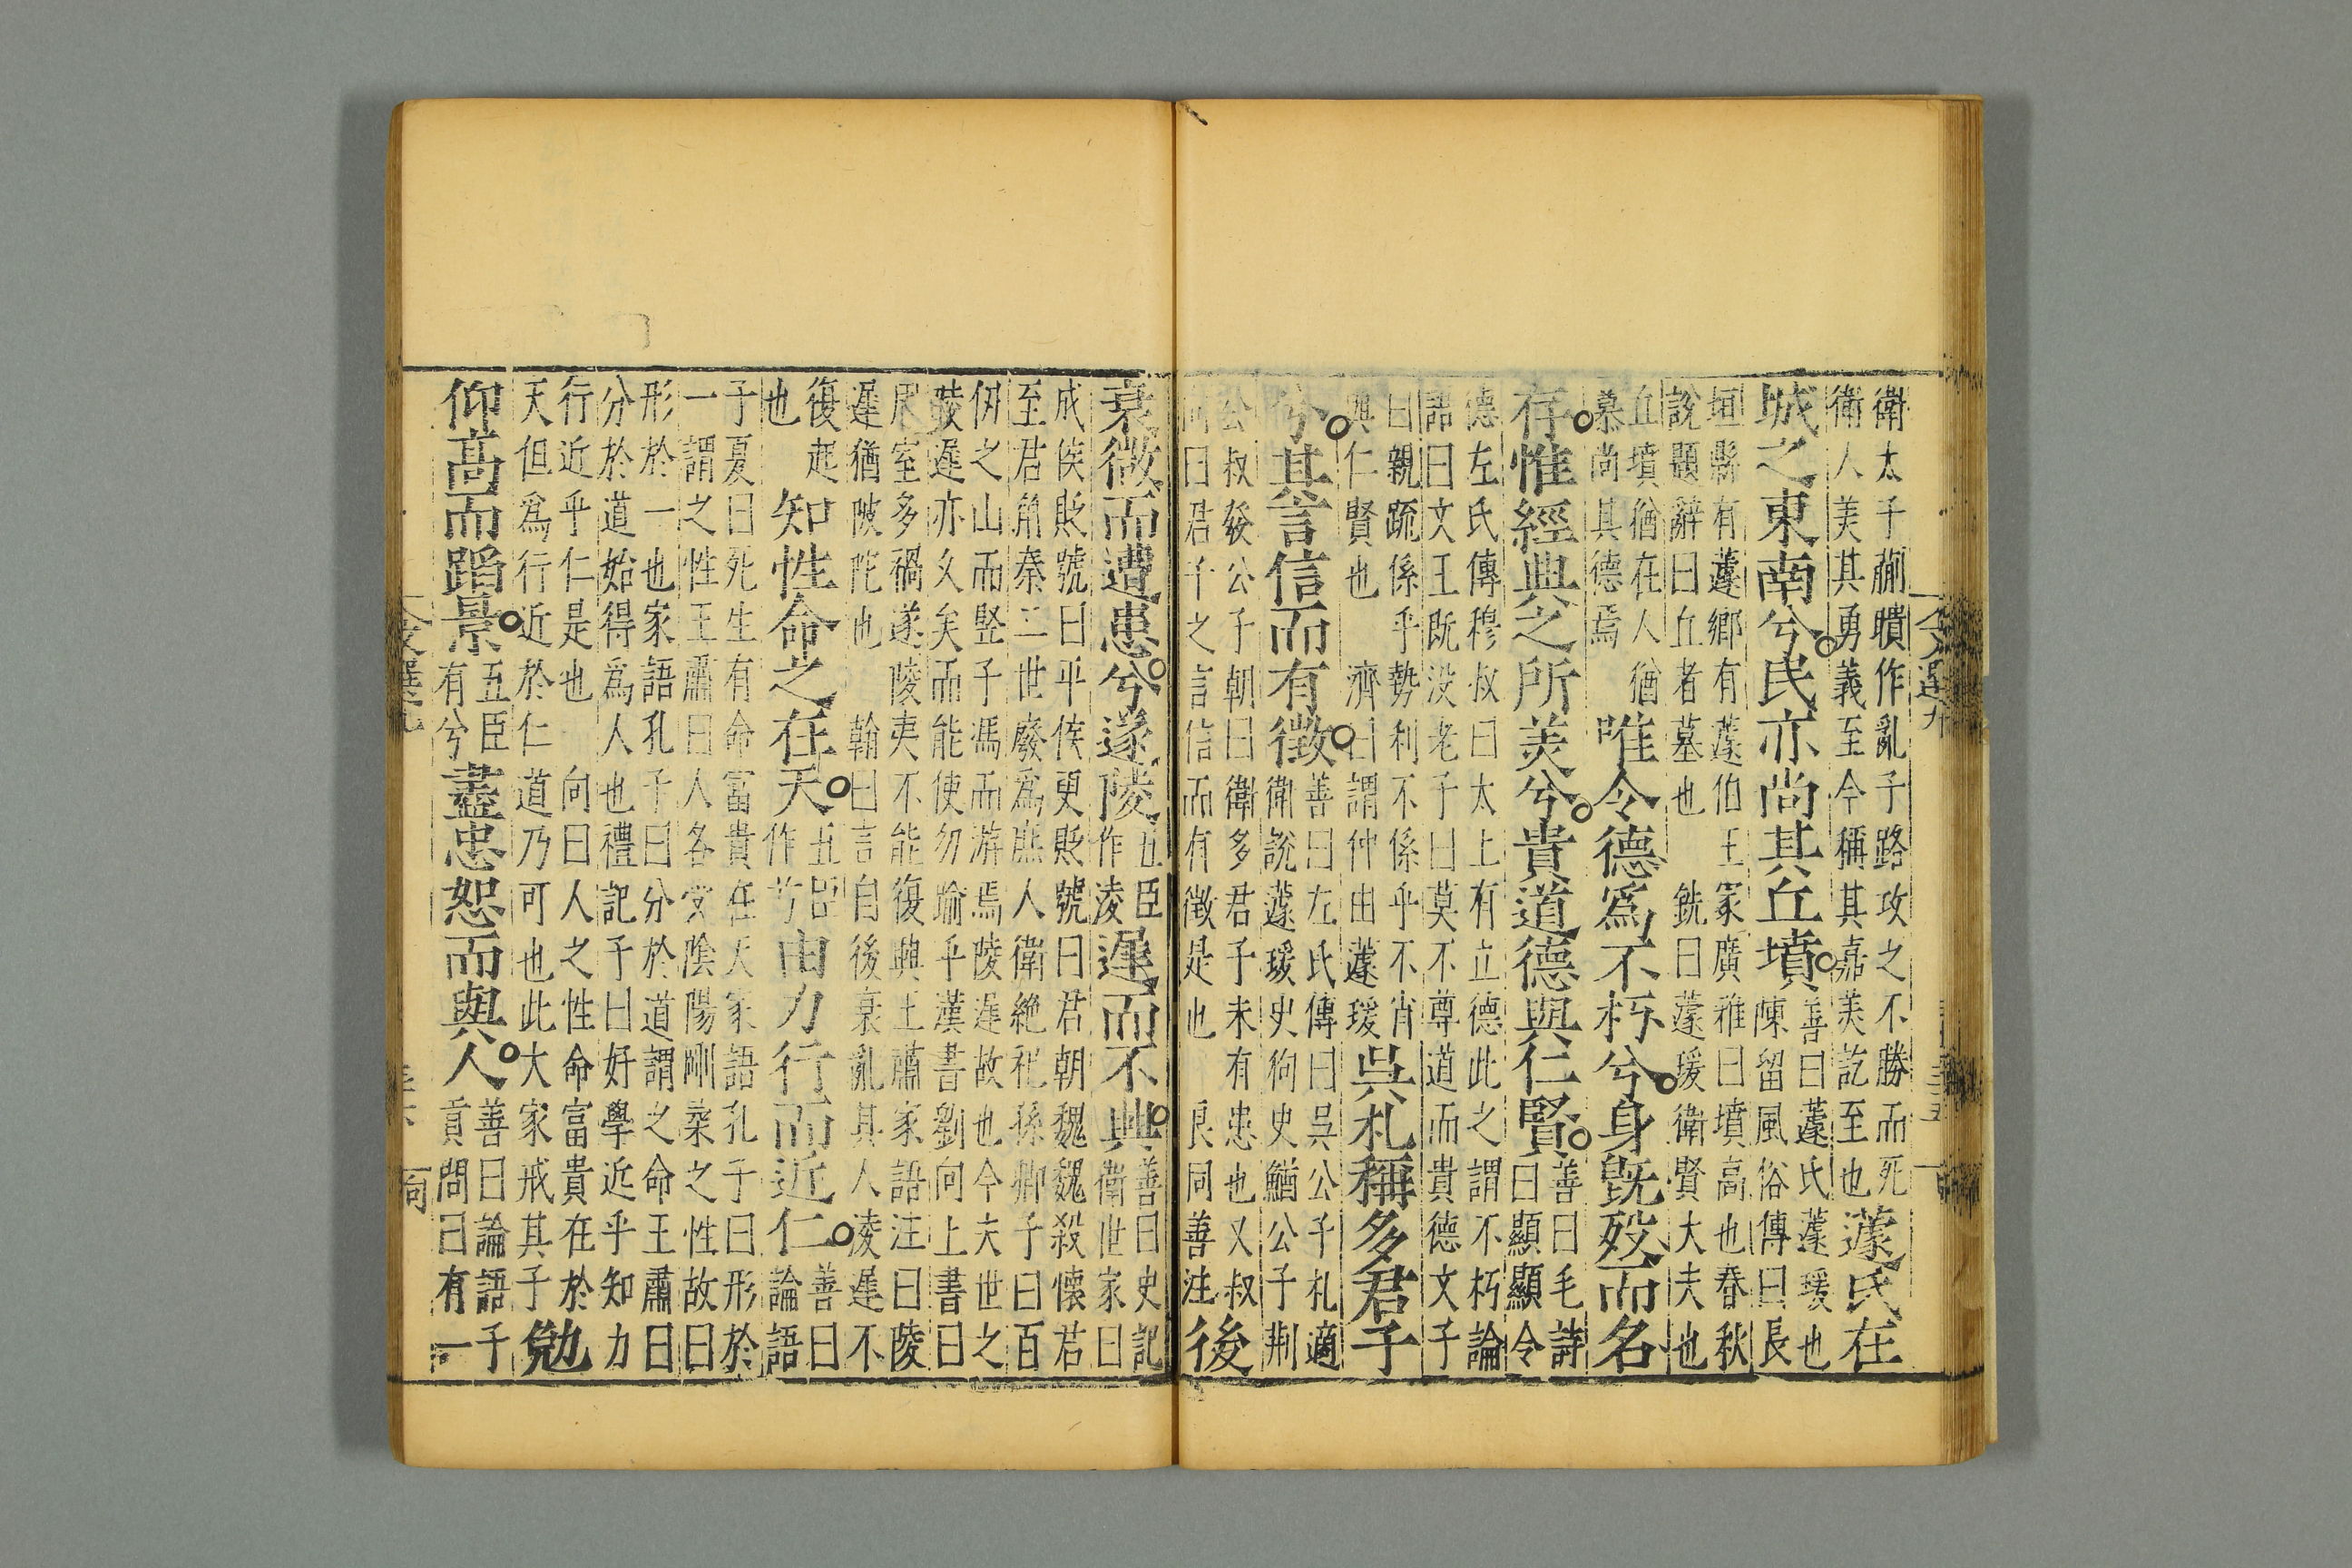 衛太子蒯聵作亂子路攻之不勝而死
衛人美其勇義至今稱其嘉美訖至也
蘧氏在
城之東南兮民亦尚其丘墳
善曰蘧氏蘧瑗也
陳留風俗傳曰長
垣縣有蘧鄉有蘧伯玉冢廣雅曰墳高也春秋
說題辭曰丘者墓也 銑曰蘧瑗衛賢大夫也
丘墳猶在人猶
慕尚其德焉
唯令德爲不朽兮身旣歿而名
存惟經典之所美兮貴道德與仁賢
善曰毛詩
曰顯顯令
德左氏傳穆叔曰太上有立德此之謂不朽論
語曰文王旣没老子曰莫不尊道而貴德文子
曰親疏係乎勢利不係乎不肖
與仁賢也 濟曰謂仲由蘧瑗
吳札稱多君子
兮其言信而有徵
善曰左氏傳曰吳公子札適
衛說蘧瑗史狗史鰌公子荆
公叔發公子朝曰衛多君子未有患也又叔
向曰君子之言信而有徵是也 良同善注
後
衰微而遭患兮遂陵
五臣
作凌
遲而不興
善曰史記
衛世家曰
成侯貶號曰平侯更貶號曰君朝魏魏殺懷君
至君角秦二世廢爲庶人衛絶祀孫卿子曰百
仞之山而竪子馮而游焉陵遲故也今夫世之
陵遲亦久矣而能使勿踰乎漢書劉向上書曰
周室多禍遂陵夷不能復興王肅家語注曰陵
遲猶陂陀也 翰曰言自後衰亂其人凌遲不
復起
也
知性命之在天
五臣
作兮
由力行而近仁
善曰
論語
子夏曰死生有命富貴在天家語孔子曰形於
一謂之性王肅曰人各受陰陽剛柔之性故曰
形於一也家語孔子曰分於道謂之命王肅曰
分於道始得爲人也禮記子曰好學近乎知力
行近乎仁是也 向曰人之性命富貴在於
天但爲行近於仁道乃可也此大家戒其子
勉
仰高而蹈景
五臣
有兮
盡忠恕而與人
善曰論語子
貢問曰有一